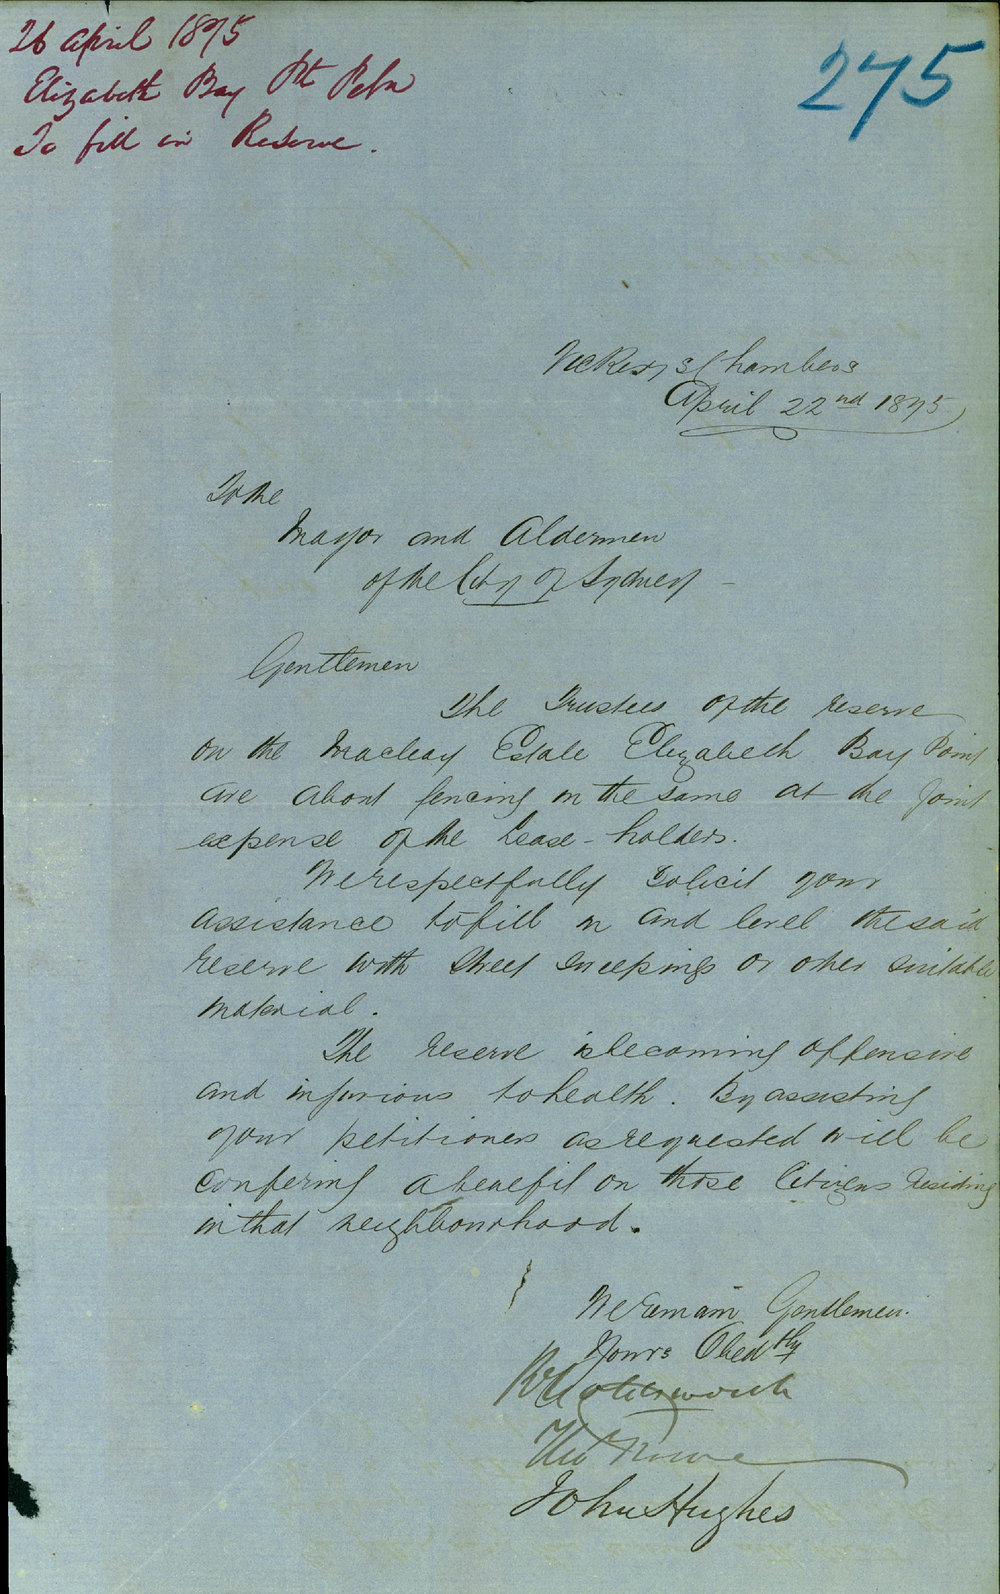 26 April 1875
Elizabeth Bay Pt Petn
To fill in Reserve.
275
Vickery's Chambers
April 22nd 1875
To the
Mayor and Aldermen
of the City of Sydney -
Gentlemen
The Trustees of the reserve
on the Macleay Estate Elizabeth Bay Point
are about fencing in the same at the joint
expense of the lease-holders.
We respectfully solicit your
assistance to fill in and level the said
reserve with street sweepings or other suitable
material.
The reserve is becoming offensive
and injurious to health. By assisting
your petitioners as requested will be
confering a benefit on those Citizens residing
in that neighbourhood.
We remain Gentlemen.
Yours Obedtly
Tho Rowe
John Hughes